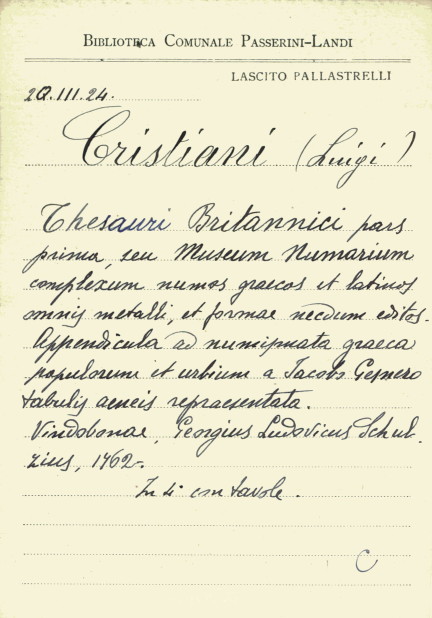 BIBLIOTECA COMUNALE PASSERINI-LANDI
LASCITO PALLASTRELLI
2Q.III.24.
Cristiani (Luigi)
Thesauri Britannici pars
prima, seu Museum Numarium
complexum numos graecos et latinos
omnis metalli, et formae necdum editos.
Appendicula ad numismata graeca
populorum et urbium a Jacobo Gesnero
tabulis aeneis repraesentata.
Vindobonae, Georgius Ludovicus Schul-
zius, 1762.
In 4° con tavole.
C